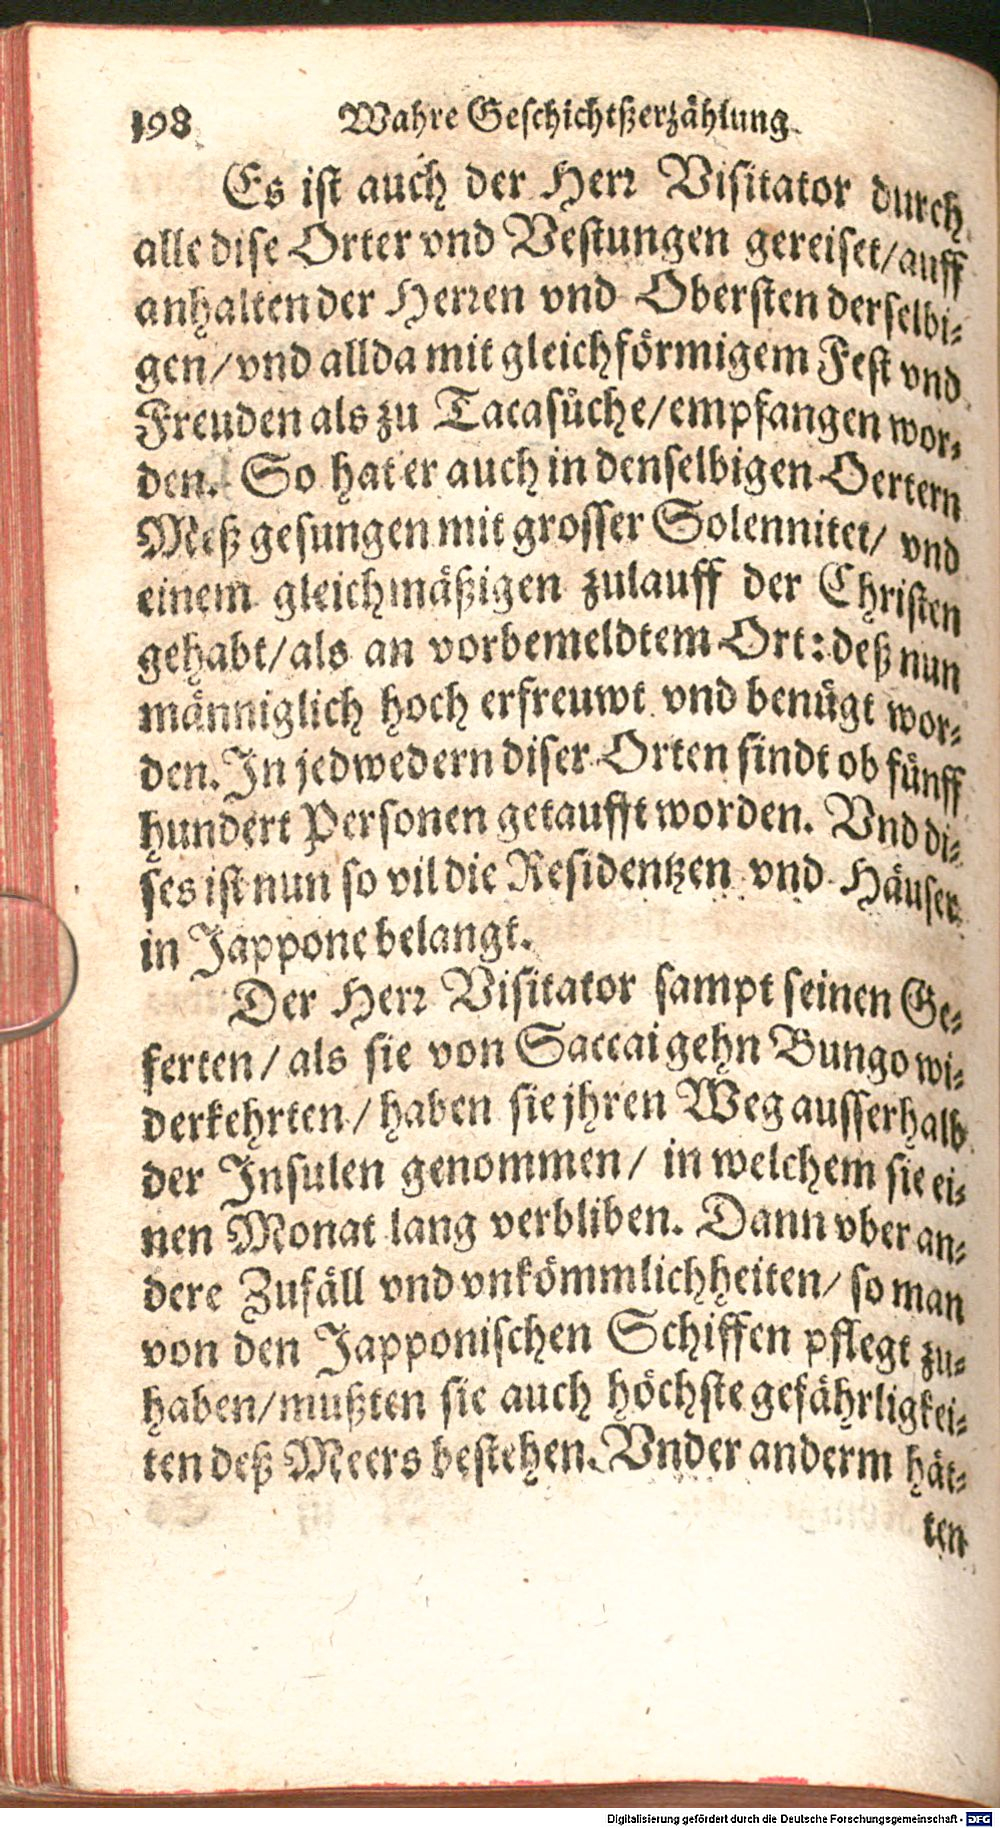 198 Wahre Geschichtßerzählung
Es ist auch der Herr Visitator durch
alle dise Orter vnd Vestungen gereiset/auff
anhalten der Herren vnd Obersten derselbi-
gen/vnd allda mit gleichförmigem Fest vnd
Freuden als zu Tacasüche/empfangen wor-
den. So hat er auch in denselbigen Oertern
Meß gesungen mit grosser Solennitet/ vnd
einem gleichmäßigen zulauff der Christen
gehabt/als an vorbemeldtem Ort: deß nun
männiglich hoch erfreuwt vnd benügt wor-
den. In jedwedern diser Orten sindt ob fünff
hundert Personen getaufft worden. Vnd di-
ses ist nun so vil die Residentzen vnd Häuser
in Jappone belangt.
Der Herr Visitator sampt seinen Ge-
ferten/ als sie von Saccai gehn Bungo wi-
derkehrten/ haben sie jhren Weg ausserhalb
der Insulen genommen/ in welchem sie ei-
nen Monat lang verbliben. Dann vber an-
dere Zufäll vnd vnkömmlichheiten/ so man
von den Japponischen Schiffen pflegt zu-
haben/mußten sie auch höchste gefährligkei-
ten deß Meers bestehen. Vnder anderm hät-
ten
Digitalisierung gefördert durch die Deutsche Forschungsgemeinschaft - DFG